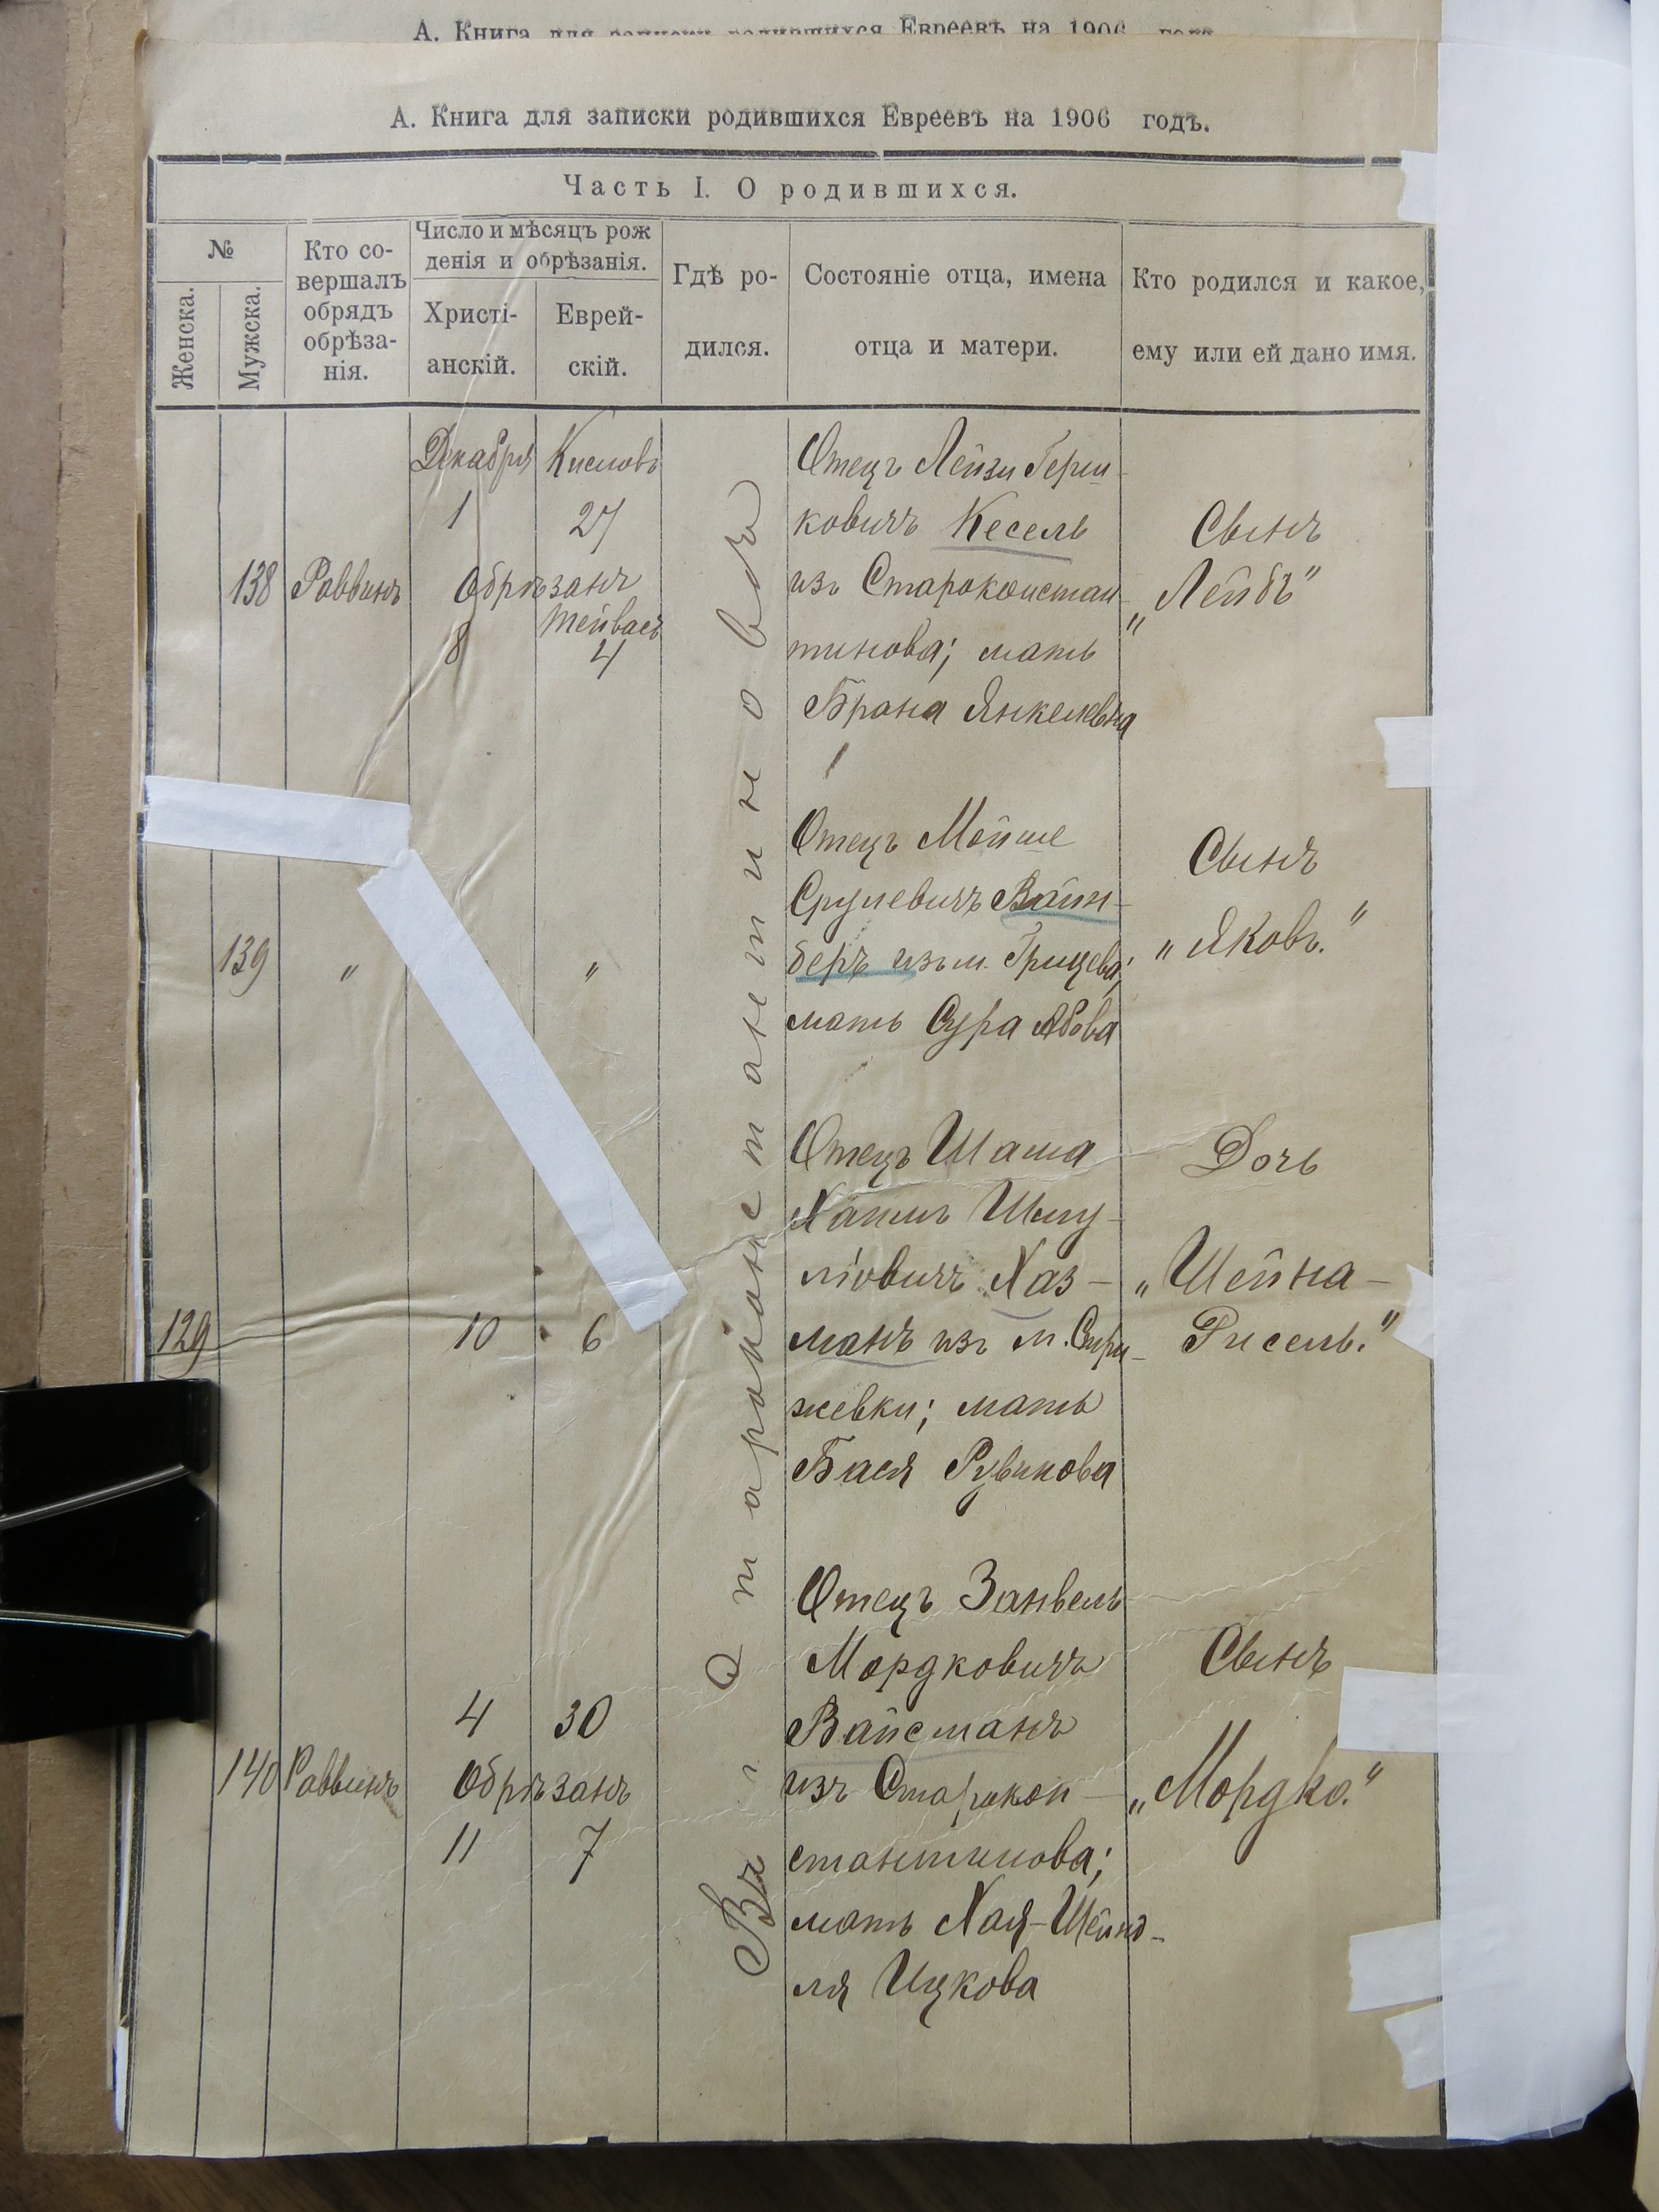 А. Книга для записки родившихся Евреевъ на 1906 годъ
А. Книга для записки родившихся Евреевъ на 1906 годъ.
Часть I. О родившихся.
№
Женска.
Мужска.
Кто со-
вершалъ
обрядъ
обрѣза-
нія.
Число и мѣсяцъ рож
денія и обрѣзанія.
Христі-
анскій.
Еврей-
скій.
Гдѣ ро-
дился.
Состояніе отца, имена
отца и матери.
Кто родился и какое,
ему или ей дано имя.
Въ г. Староконстантиновѣ
138
Раввинъ
Декабря
1
Кисловъ
27
Обрѣзанъ
8
Тейвась
4
Отецъ Лейзи Герш-
ковичъ Кесель
изъ Староконстан-
тинова; мать
Брана Янкелевна
Сынъ
„Лейбъ“
139
"
"
Отецъ Мойше
Срулевичъ Вайн-
беръ изъ м. Грицева;
мать Сура Абова
Сынъ
„Яковъ.“
129
10
6
Отецъ Шама
Хаимъ Шму-
ліовичъ Хаз-
манъ изъ м.
жевки; мать
Бася Рувинова
Дочь
„Шейна-
Рисель.“
140
Раввинъ
4
30
Обрѣзанъ
11
7
Отецъ Занвель
Мордковичъ
Вайсманъ
изъ Старокон-
стантинова;
мать Хая-Шейнд-
ля Ицкова
Сынъ
„Мордко.“